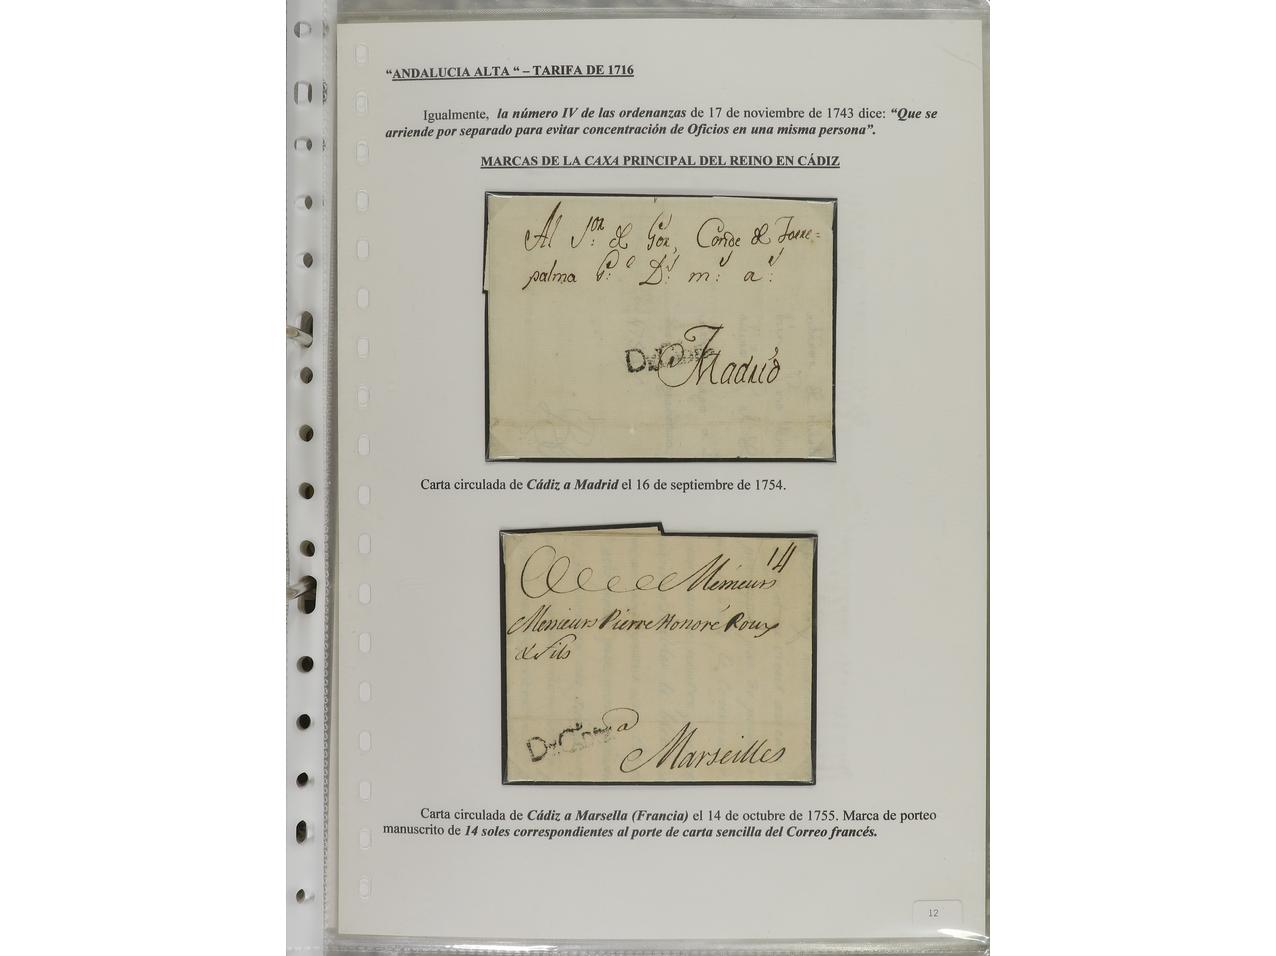 “ANDALUCIA ALTA “ – TARIFA DE 1716
Igualmente, la número IV de las ordenanzas de 17 de noviembre de 1743 dice: “Que se
arriende por separado para evitar concentración de Oficios en una misma persona”.
MARCAS DE LA CAXA PRINCIPAL DEL REINO EN CÁDIZ
Al Sor. Conde de Torre=
palma
Madrid
Carta circulada de Cádiz a Madrid el 16 de septiembre de 1754.
14
Messieurs
Messieurs Pierre Honoré Roux
& fils
a
Marseilles
Carta circulada de Cádiz a Marsella (Francia) el 14 de octubre de 1755. Marca de porteo
manuscrito de 14 soles correspondientes al porte de carta sencilla del Correo francés.
12